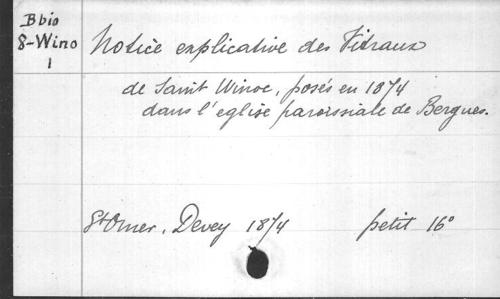 Bbio
8-Wino
1
Notice explicative des Vitraux
de Saint Winoc, posés en 1874
dans l'eglise paroissiale de Bergues.
St Omer, Devey 1874 petit 16°